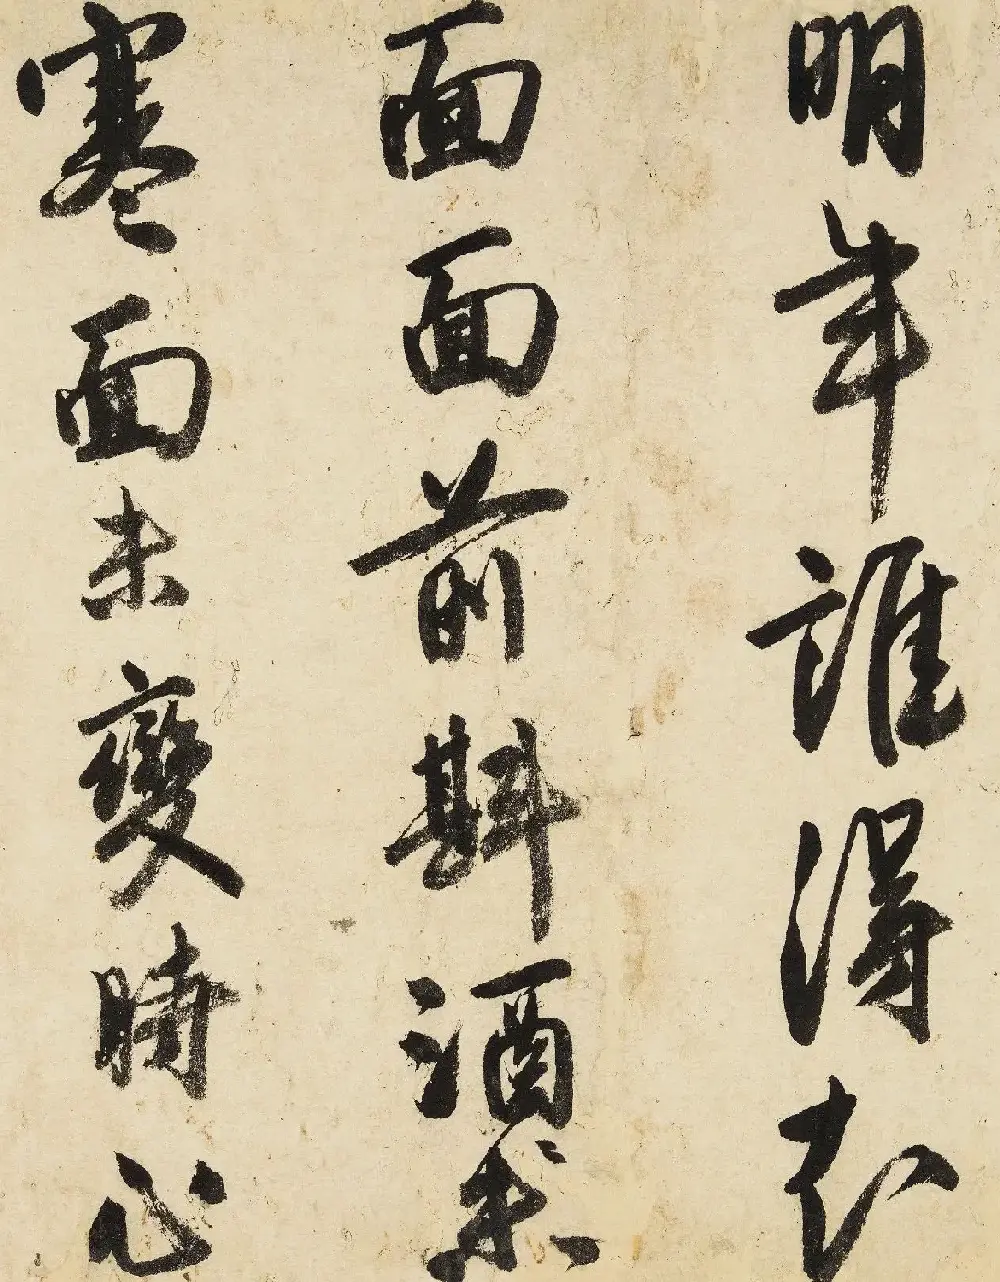 明年誰得
面面前斟酒未
寒面未變時心